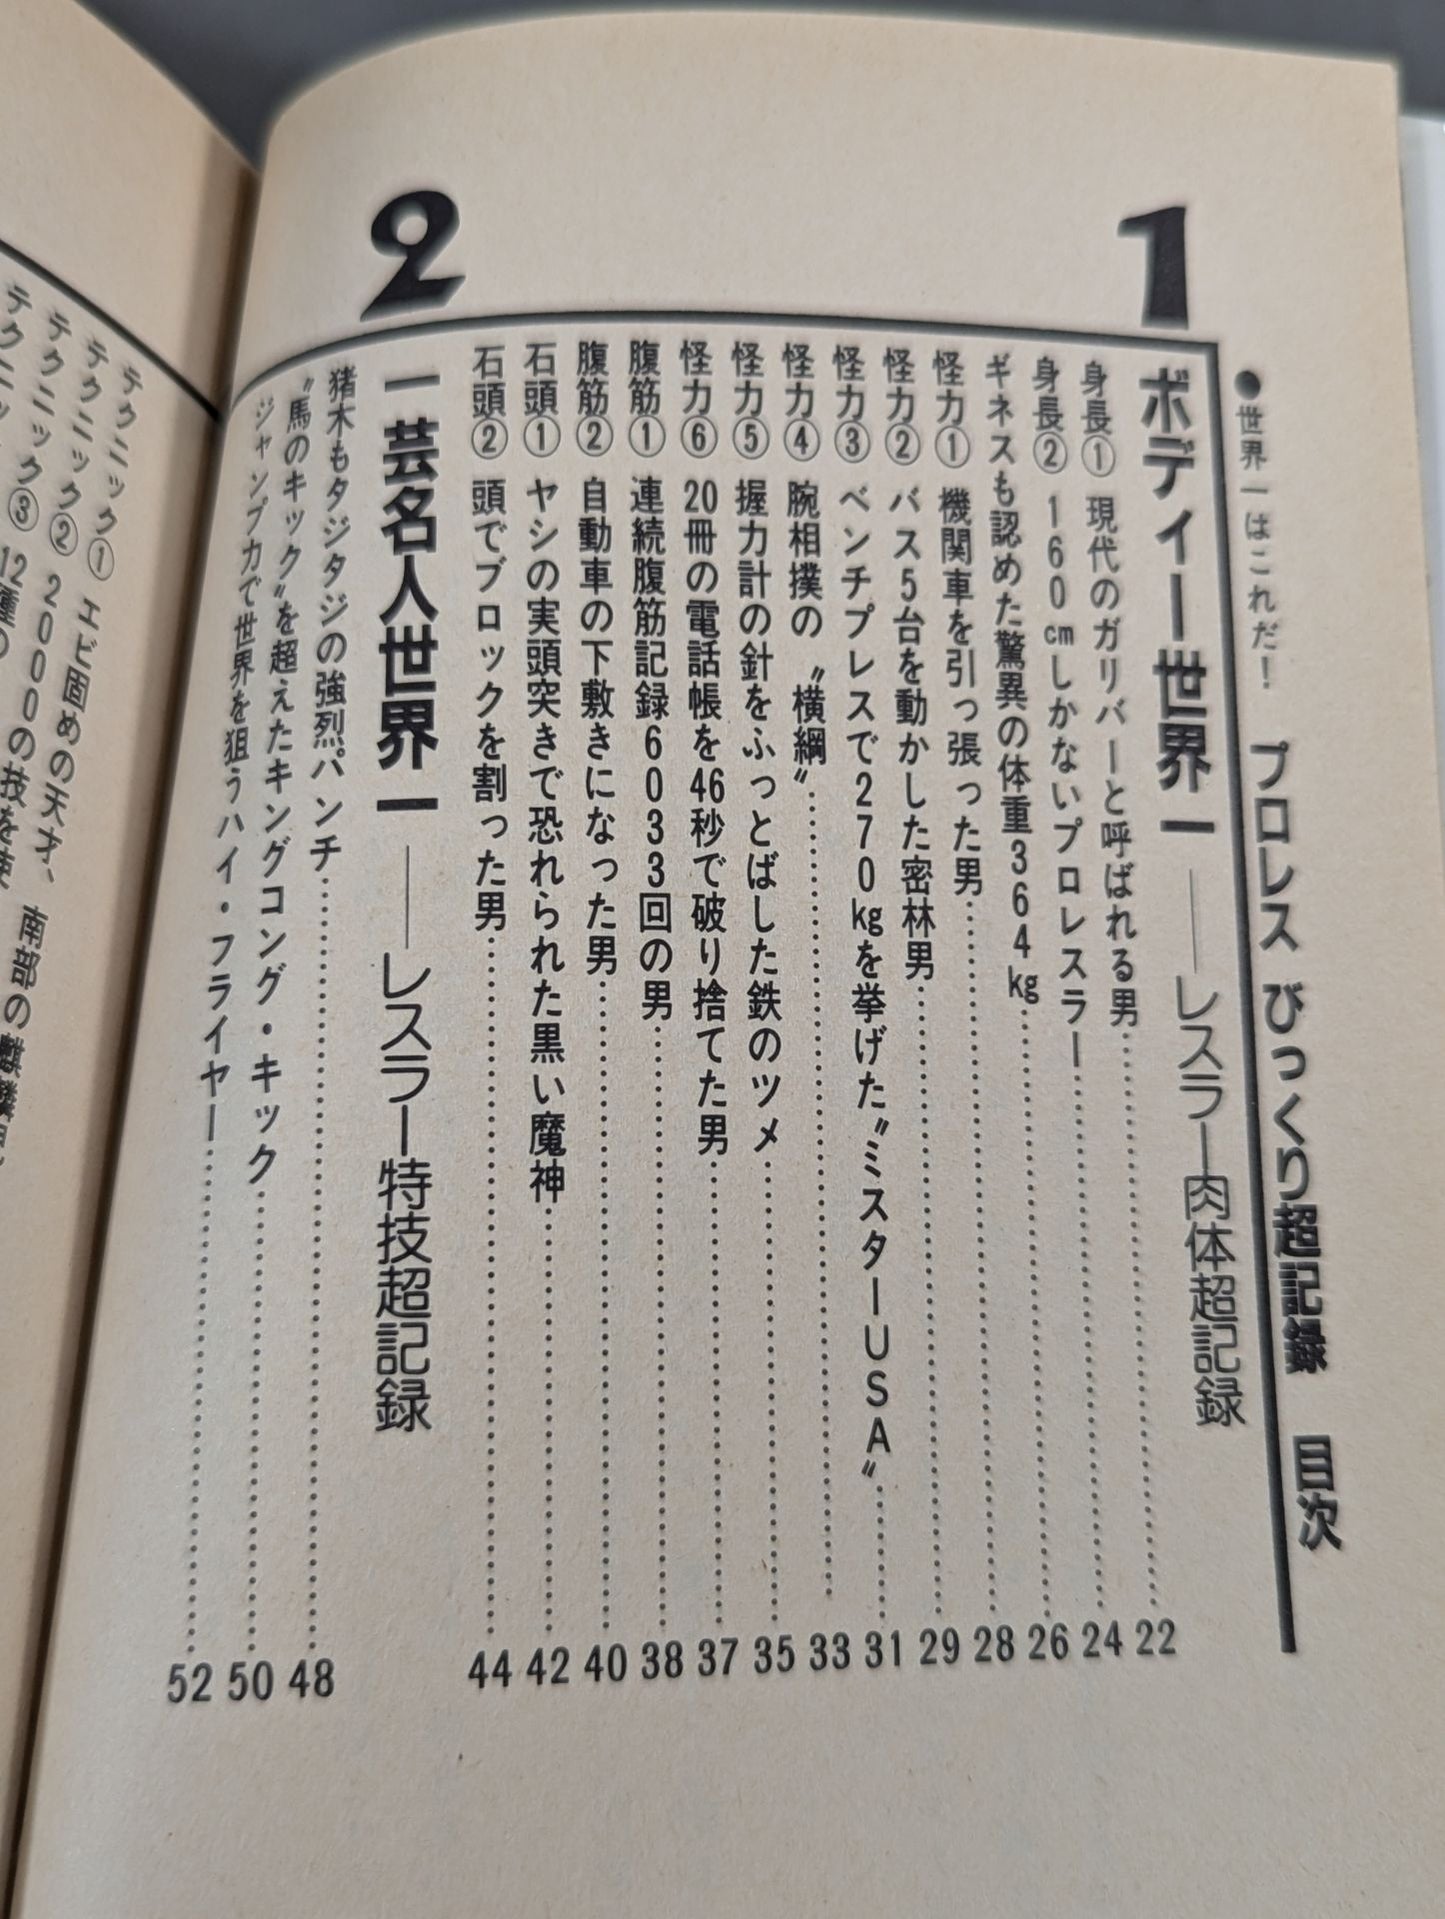 ●世界一はこれだ！ プロレス びっくり超記録 目次
1 ボディー世界一――レスラー肉体超記録
身長① 現代のガリバーと呼ばれる男……22
身長② 160cmしかないプロレスラー……24
ギネスも認めた驚異の体重364kg……26
怪力① 機関車を引っ張った男……28
怪力② バス5台を動かした密林男……29
怪力③ ベンチプレスで270kgを挙げた〝ミスターUSA〟……31
怪力④ 腕相撲の〝横綱〟……33
怪力⑤ 握力計の針をふっとばした鉄のツメ……35
怪力⑥ 20冊の電話帳を46秒で破り捨てた男……37
腹筋① 連続腹筋記録6033回の男……38
腹筋② 自動車の下敷きになった男……40
石頭① ヤシの実頭突きで恐れられた黒い魔神……42
石頭② 頭でブロックを割った男……44
2 一芸名人世界一――レスラー特技超記録
猪木もタジタジの強烈パンチ……48
〝馬のキック〟を超えたキングコング・キック……50
ジャンプ力で世界を狙うハイ・フライヤー……52
テクニック① エビ固めの天才、南部の麒麟児
テクニック② 2000の技を使
テクニック③ 12種の
テクニッ